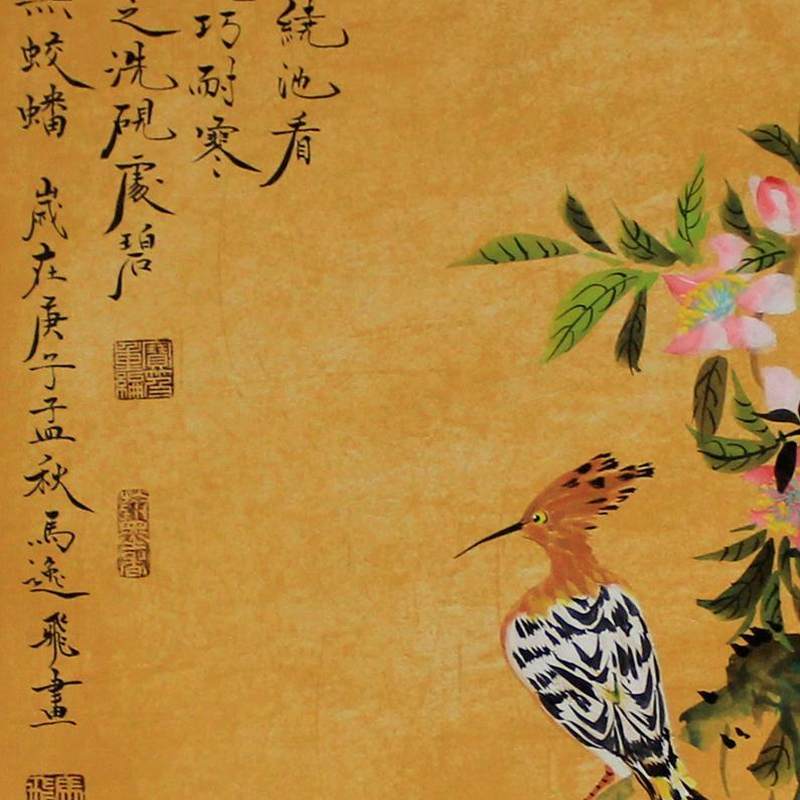 繞池看
巧耐寒
之洗硯處碧
蛟蟠 歲在庚子孟秋馬逸飛畫